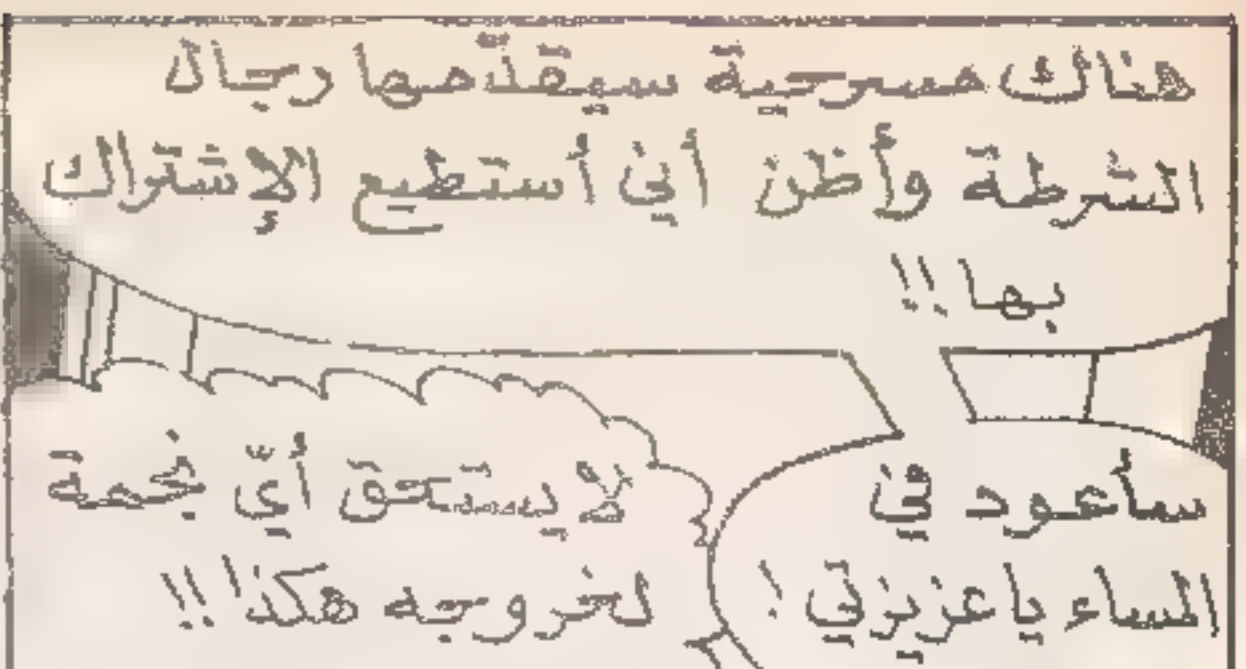 هناك مسرحية سيقدّمها رجال
الشرطة وأظن أني أستطيع الإشتراك
بها !!
سأعود في
المساء ياعزيزتي !
لا يستحق أيّ نجمة
لخروجه هكذا !!